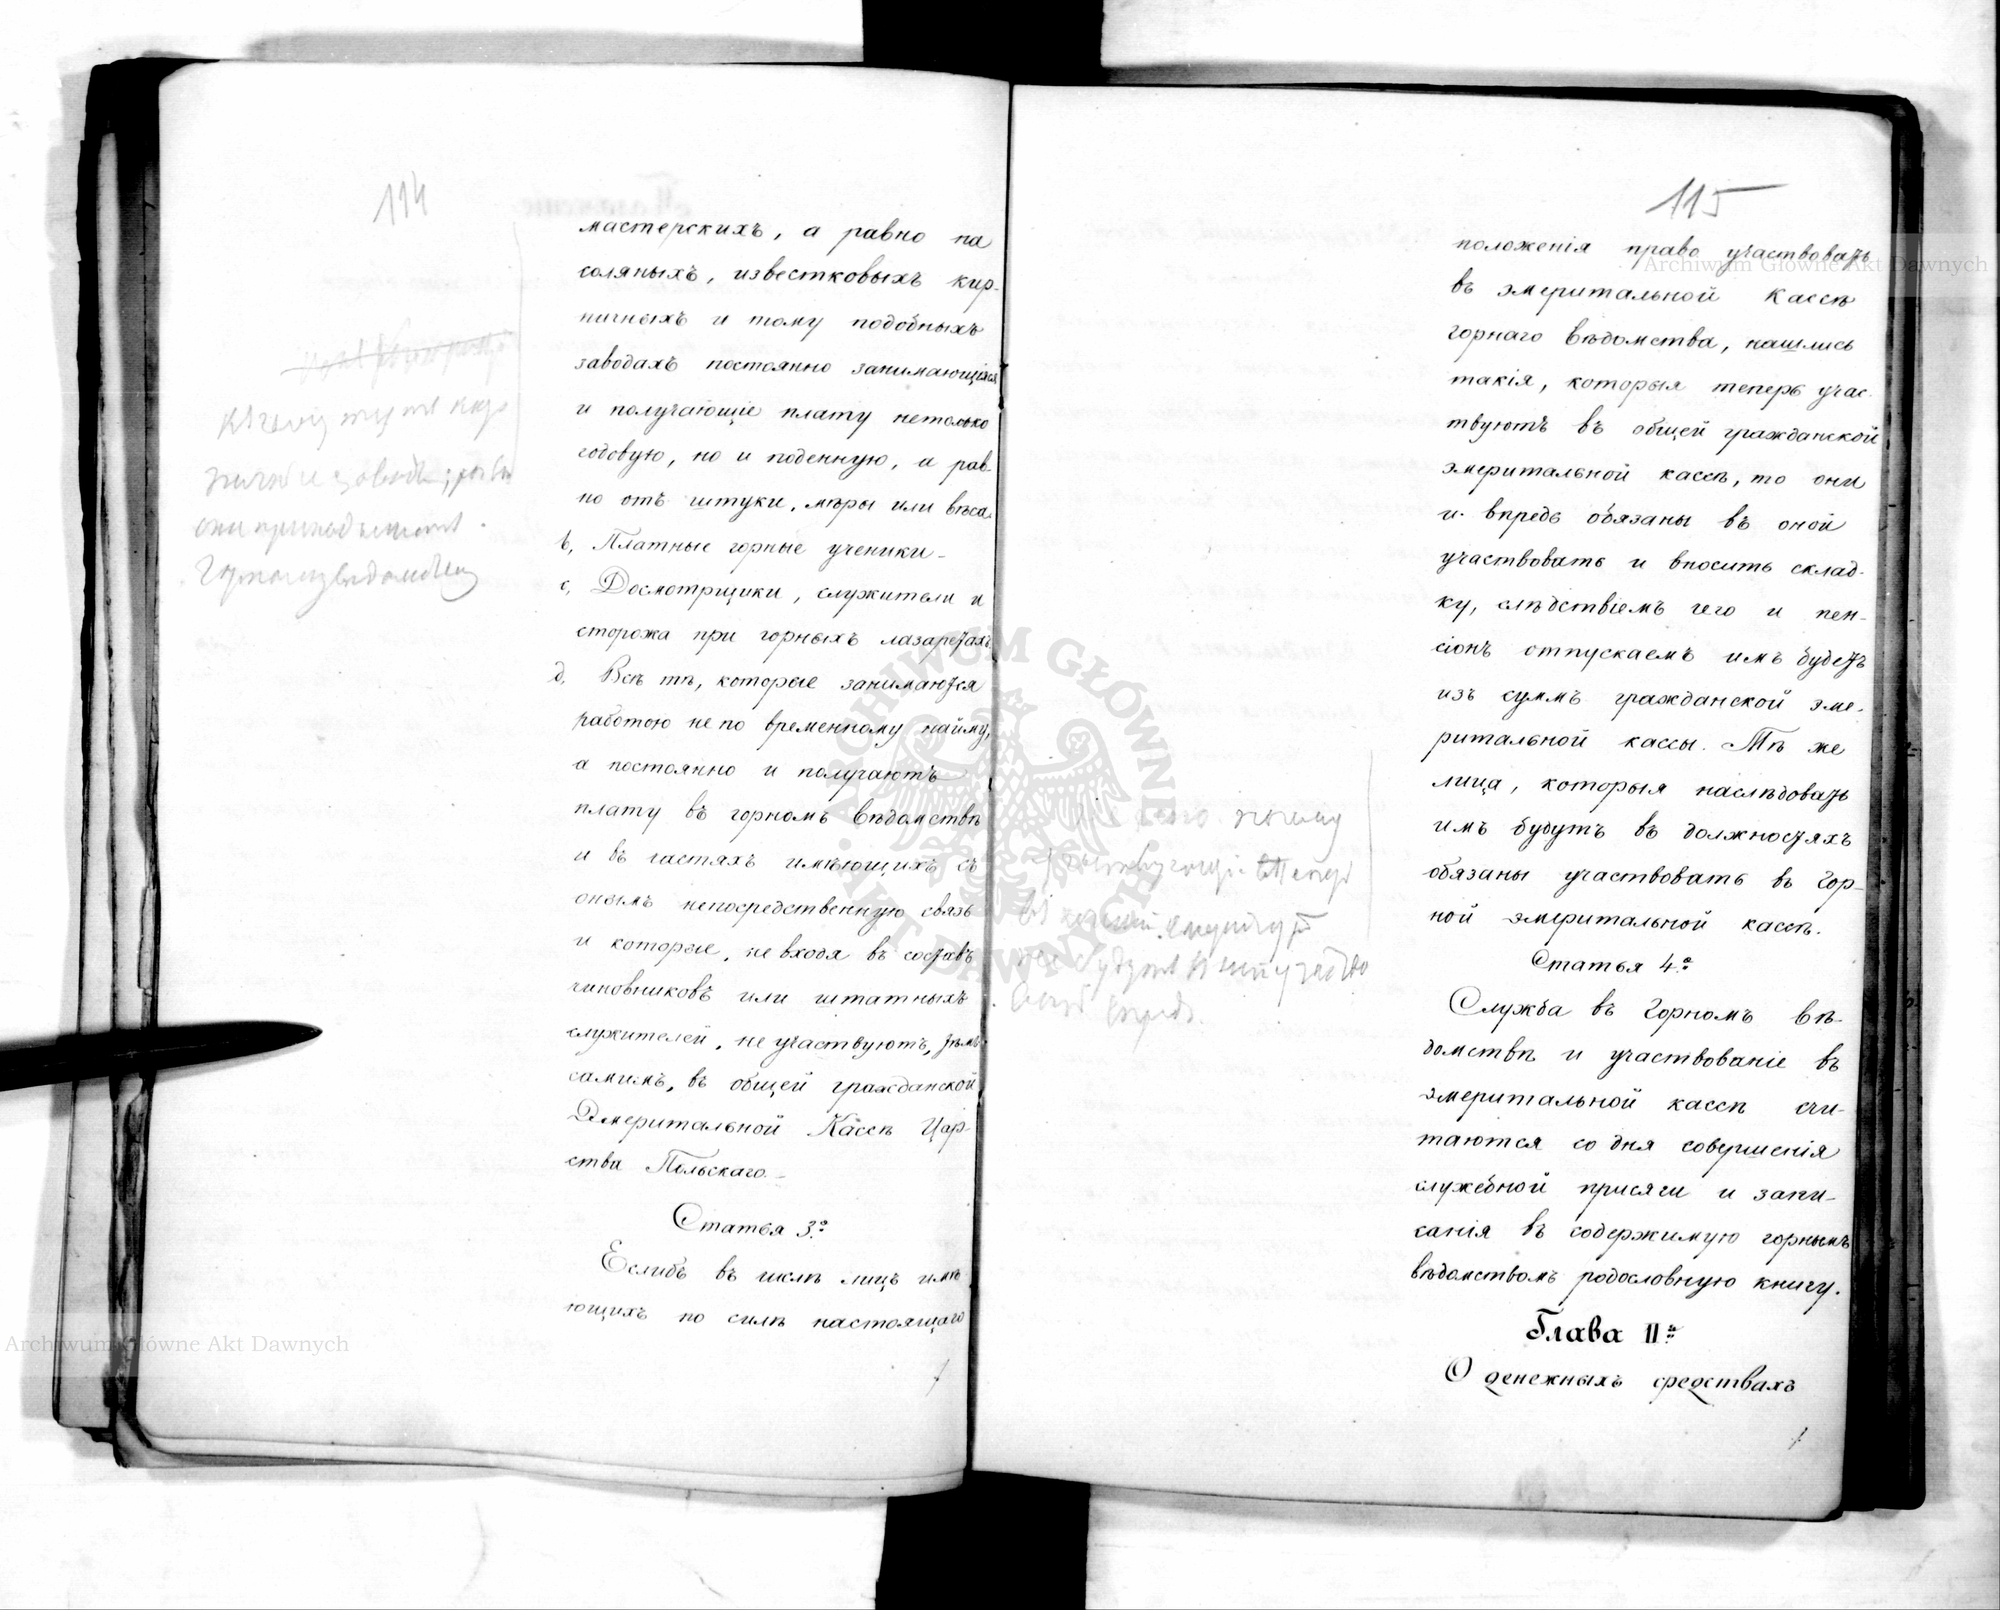 114
мастерскихъ, а равно на
соляныхъ, известковыхъ кир-
пичныхъ и тому подобныхъ
заводахъ постоянно занимающіяся
и получающіе плату нетолько
годовую, но и поденную, а рав-
но отъ штуки, мѣры или вѣса.
b, Платные горные ученики -
c, Досмотрщики, служители и
сторожа при горныхъ лазаретахъ.
d, Всѣ тѣ, которые занимаются
работою не по временному найму,
а постоянно и получаютъ
плату въ горномъ вѣдомствѣ
и въ частяхъ имѣющихъ съ
онымъ непосредственную связь
и которые, не входя въ составъ
чиновниковъ или штатныхъ
служителей, не участвуютъ, тѣмъ
самимъ, въ общей гражданской
Эмеритальной Кассѣ Цар-
ства Польскаго. -
Статья 3.
Еслибъ въ числѣ лицъ имѣ-
ющихъ по силѣ настоящаго
они
115
положенія право участвовать
въ эмеритальной кассѣ
горнаго вѣдомства, нашлись
такія, которыя теперь учас-
твуютъ въ общей гражданской
эмеритальной кассѣ, то они
и впредь обязаны въ оной
участвовать и вносить склад-
ку, слѣдствіемъ чего и пен-
сіонъ отпускаемъ имъ будетъ
изъ суммъ гражданской эме-
ритальной кассы. Тѣ же
лица, которыя наслѣдовать
имъ будутъ въ должностяхъ
обязаны участвовать въ гор-
ной эмеритальной кассѣ.
Статья 4.
Служба въ Горномъ Вѣ-
домствѣ и участвованіе въ
эмеритальной кассѣ счи-
таются со дня совершенія
служебной присяги и запи-
санія въ содержимую горнымъ
вѣдомствомъ родословную книгу.
Глава II.
О денежныхъ средствахъ
впредь.
Archiwum Główne Akt Dawnych
Archiwum Główne Akt Dawnych
ARCHIWUM GŁÓWNE AKT DAWNYCH